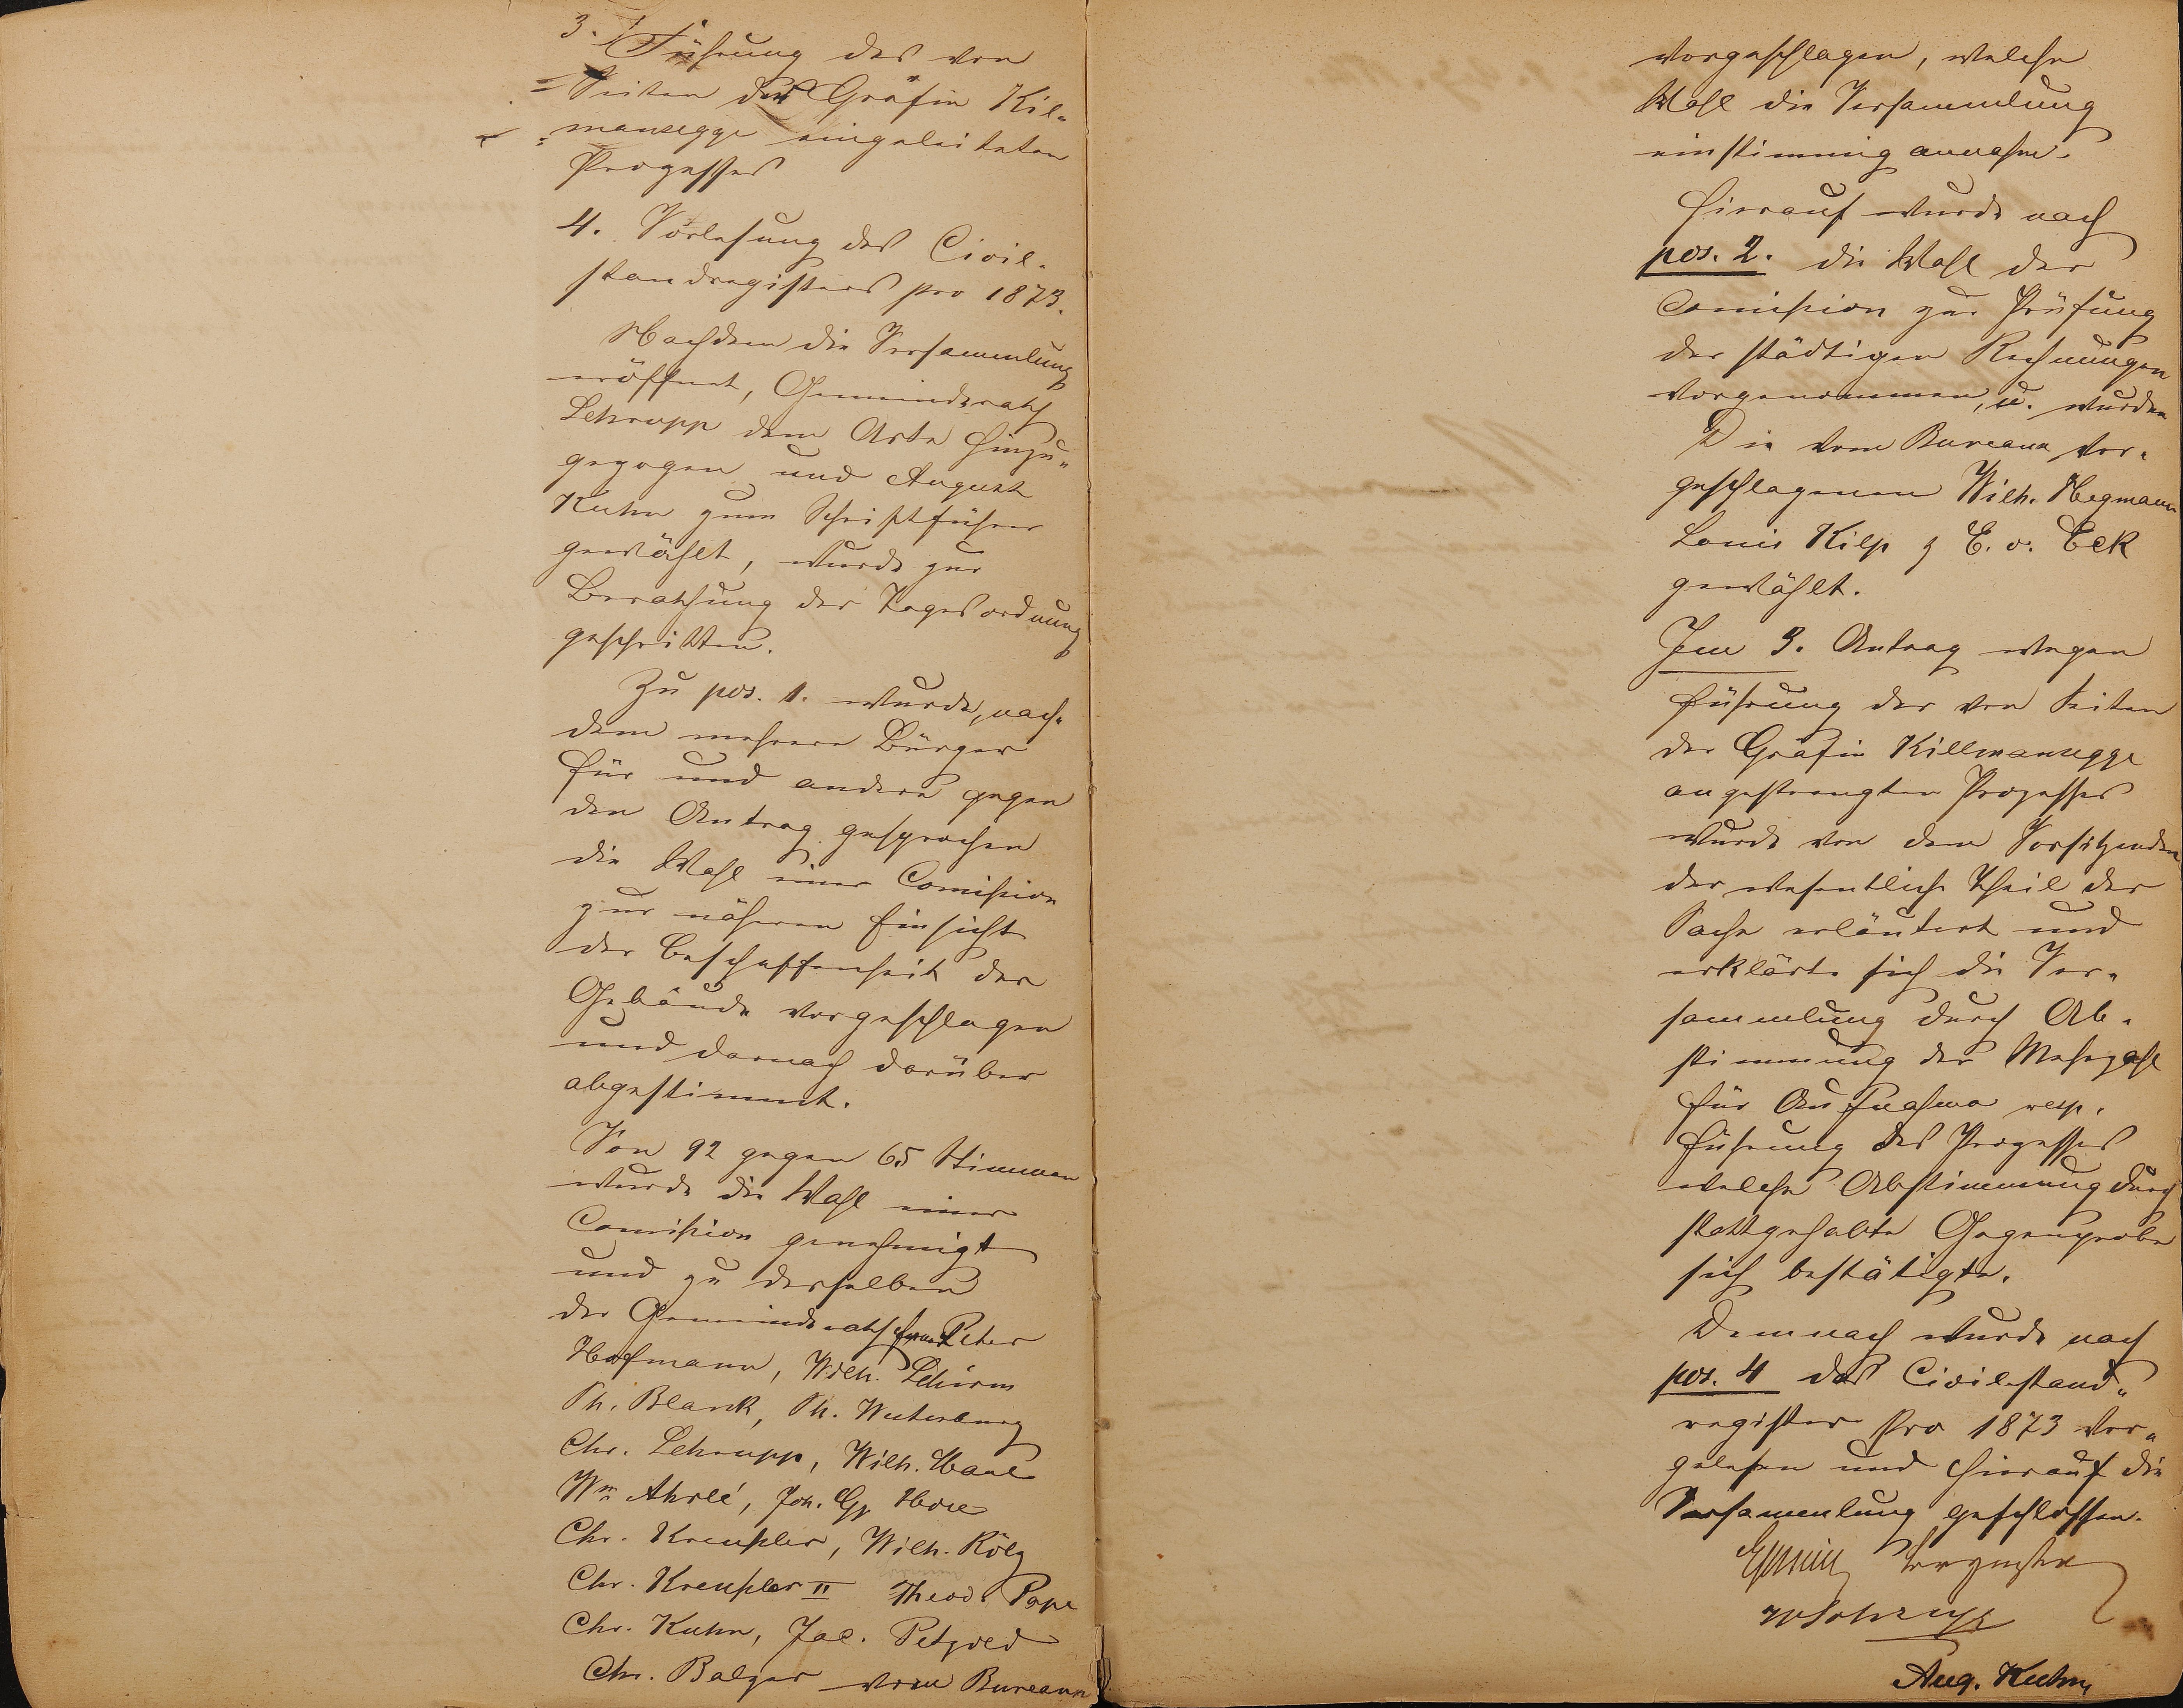 3. Führung des von
Seiten der Gräfin Kil-
mansegge eingeleiteten
Prozesses
4. Vorlesung des Civil-
standregisters pro 1873.
Nachdem die Versammlung
eröffnet, Gemeinderath
Schrupp dem Acte hinzu-
gezogen und August
Kuhn zum Schriftführer
gewählt, wurde zur
Berathung der Tagesordnung
geschritten.
Zu pos. 1. wurde, nach-
dem mehrere Bürger
für und andere gegen
den Antrag gesprochen
die Wahl einer Comission
zur näheren Einsicht
der Beschaffenheit der
Gebäude vorgeschlagen
und darnach darüber
abgestimmt.
Von 92 gegen 65 Stimmen
wurde die Wahl einer
Comission genehmigt
und zu derselben
der Gemeinderath Peter
Hofmann, Wilh. Schirm
Ph. Blanck, Ph. Wuterburg
Chr. Schrupp, Wilh. Haul
Wm Ahrlé, Joh. Gg
Chr. Kreussler, Wilh. Rölz
Chr. Kreussler II Theod. Pape
Chr. Kuhn, Jac. Petzold
Chr. Balzer vom Bureaux
vorgeschlagen, welche
Wahl die Versammlung
einstimmig annahm.
Hierauf wurde nach
pos. 2. die Wahl der
Comission zur Prüfung
der städtigen Rechnungen
vorgenommen, u. wurden
Die vom Bureaux vor-
geschlagenen Wilh. Hegmann
Louis Kilp & E. v. Eck
gewählt.
Zum 3. Antrag wegen
Führung der von Seiten
der Gräfin Killmansegge
angestrengten Prozesses
wurde von dem Vorsitzenden
der wesentliche Theil der
Sache erläutert und
erklärte sich die Ver-
sammlung durch Ab-
stimmung der Mehrzahl
für Aufnahme resp.
Führung des Prozesses
welche Abstimmung durch
stattgehabte Gegenprobe
sich bestätigte.
Demnach wurde nach
pos. 4 das Civilstand-
register pro 1873 vor-
gelesen und hierauf die
Versammlung geschlossen.
Schrupp
Aug. Kuhn